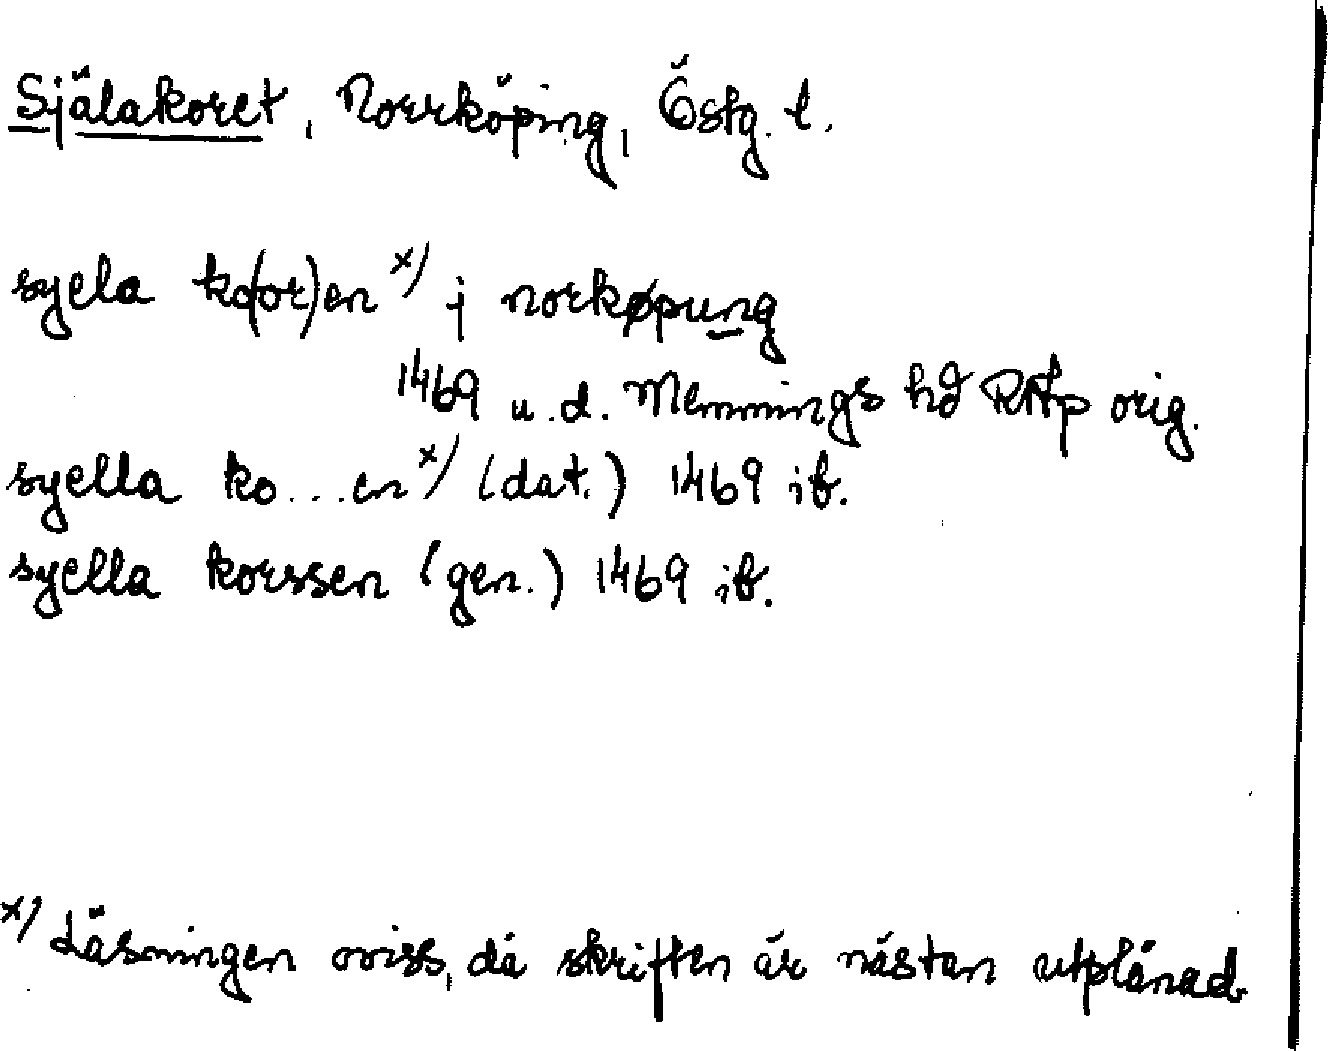 Själakoret, Norrköping, Östg. l.
syela ko(or)en x) j norkøpung
1469 u.d. Memmings hd RAp orig.
syella ko...en x) (dat.) 1469 ib.
syella korssen (gen.) 1469 ib.
x) Läsningen oviss, då skriften är nästan utplånad